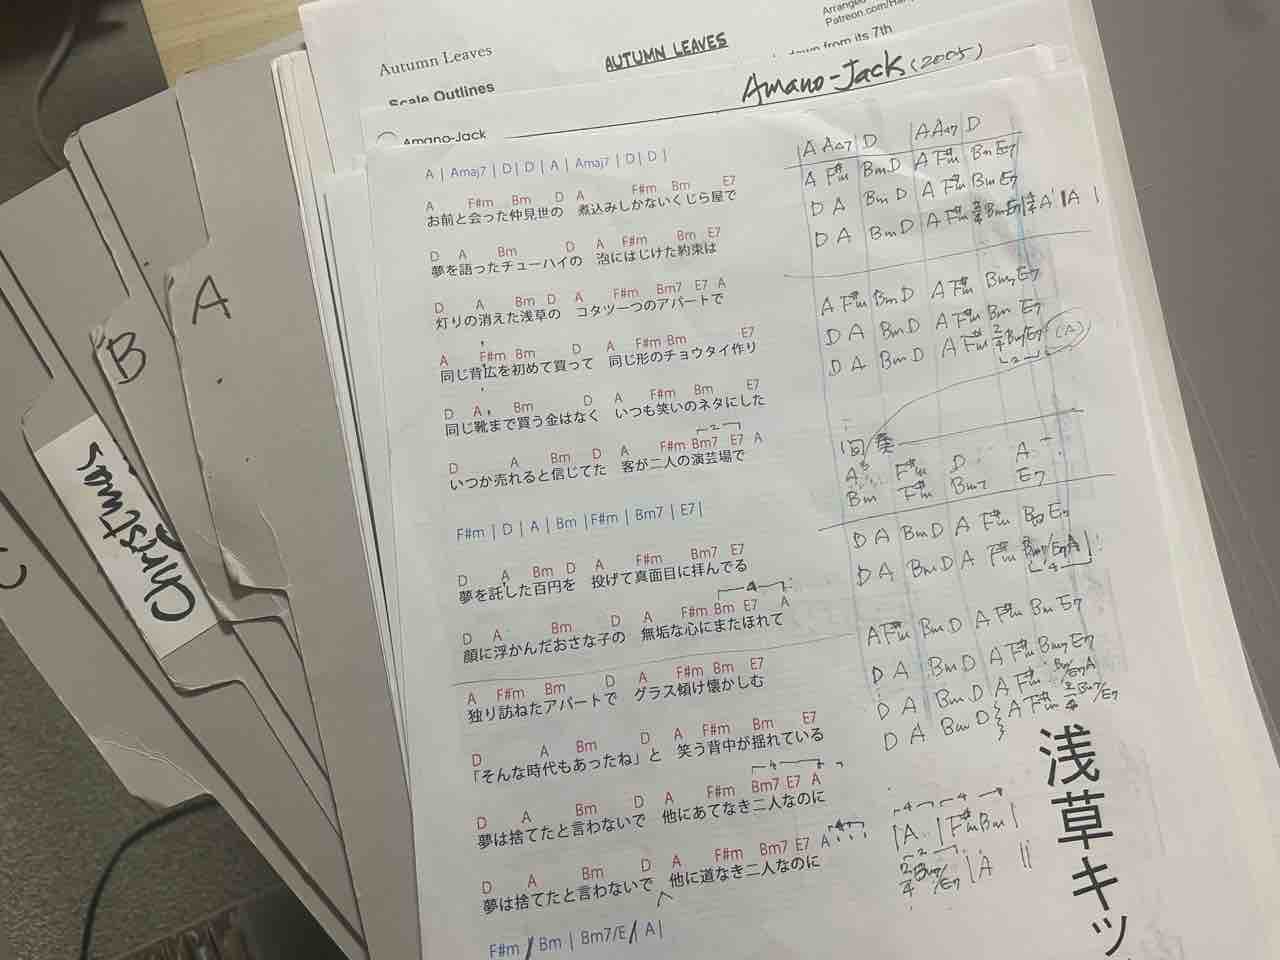 Autumn Leaves
AUTUMN LEAVES
Arranged
Patreon.com/Har
Scale Outlines
down from its 7th
Amano-Jack (2005)
Amano-Jack
A | Amaj7 | D | D | A | Amaj7 | D | D |
A F#m Bm D A F#m Bm E7
お前と会った仲見世の 煮込みしかないくじら屋で
D A Bm D A F#m Bm E7
夢を語ったチューハイの 泡にはじけた約束は
D A Bm D A F#m Bm7 E7 A
灯りの消えた浅草の コタツ一つのアパートで
A F#m Bm D A F#m Bm E7
同じ背広を初めて買って 同じ形のチョウタイ作り
D A Bm D A F#m Bm E7
同じ靴まで買う金はなく いつも笑いのネタにした
D A Bm D A F#m Bm7 E7 A
いつか売れると信じてた 客が二人の演芸場で
F#m | D | A | Bm | F#m | Bm7 | E7 |
D A Bm D A F#m Bm7 E7
夢を託した百円を 投げて真面目に拝んでる
D A Bm D A F#m Bm E7 A
顔に浮かんだおさな子の 無垢な心にまたほれて
A F#m Bm D A F#m Bm E7
独り訪ねたアパートで グラス傾け懐かしむ
D A Bm D A F#m Bm E7
「そんな時代もあったね」と 笑う背中が揺れている
D A Bm D A F#m Bm7 E7 A
夢は捨てたと言わないで 他にあてなき二人なのに
D A Bm D A F#m Bm7 E7 A
夢は捨てたと言わないで 他に道なき二人なのに
F#m / Bm | Bm7/E / A |
| A A△7 | D | A A△7 | D
A F#m Bm D A F#m Bm E7
D A Bm D A F#m Bm E7
D A Bm D A F#m 2/4 Bm E7 | 4/4 A | A |
A F#m Bm D A F#m Bm7 E7
D A Bm D A F#m Bm E7
D A Bm D A F#m 2/4 Bm7/E7 (A)
2
間奏
A F#m D A
Bm F#m Bm7 E7
D A Bm D A F#m Bm E7
D A Bm D A F#m Bm7/E7 A
4
A F#m Bm D A F#m Bm E7
D A Bm D A F#m Bm7 E7
D A Bm D A F#m Bm7/E7 A
D A Bm D A F#m 2/4 Bm7/E7
| A | F#m Bm |
2/4 Bm7/E7 | A ||
浅草キッ
A
B
Christmas
C